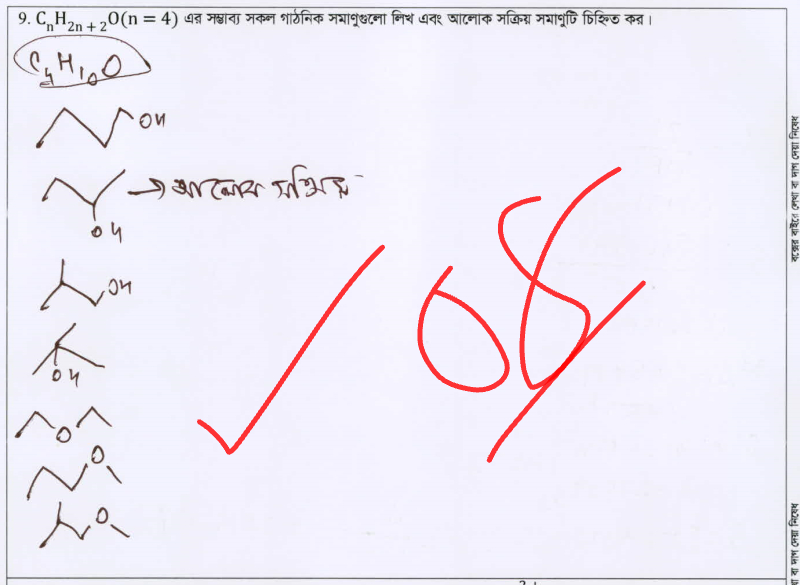 9. CₙH₂ₙ₊₂O(n = 4) এর সম্ভাব্য সকল গাঠনিক সমাণুগুলো লিখ এবং আলোক সক্রিয় সমাণুটি চিহ্নিত কর।
C₄H₁₀O
OH
→ আলোক সক্রিয়
OH
OH
OH
O
O
O
08
বক্সের বাইরে লেখা বা দাগ দেয়া নিষেধ
বা দাগ দেয়া নিষেধ